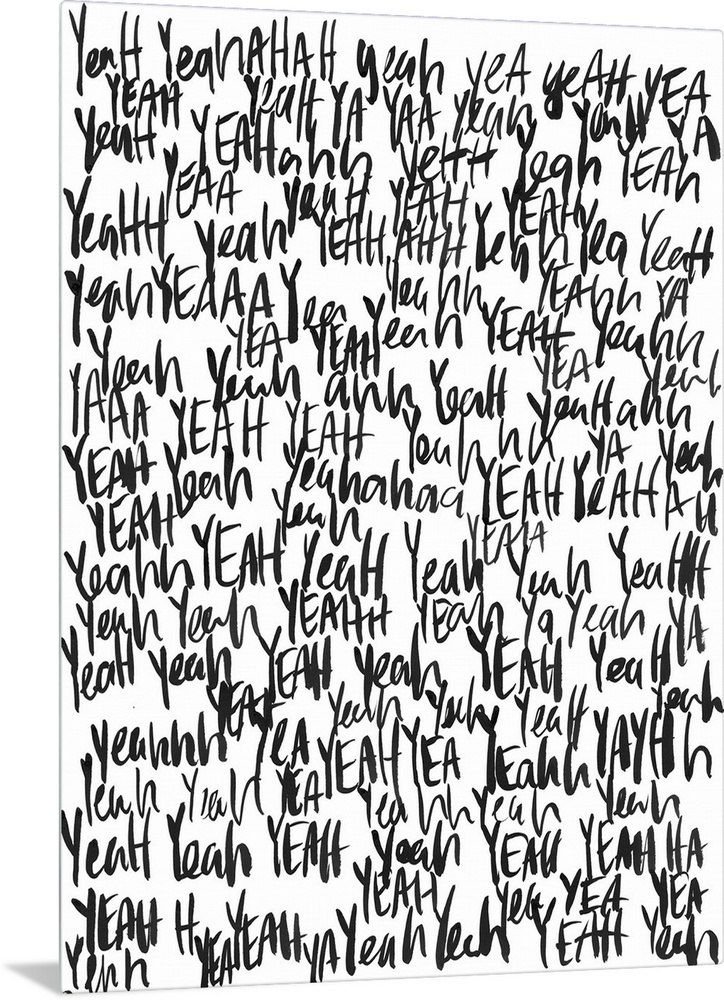 YeaH YeaHAHAH yeah yEA yeAH YEA
YEAH YeaH YA YAA Yeah YeaH YA
YeaH YEAHahh YeHH Yeah YEAh
YEAA YeaH YEAH YEAH
YeaHH Yeah YEAH AHH Yeah Yea YeaH
Yeahh YEAhh YA
Yeah YEAAA Yea
YEA YEAH Yeah YEAH Yeahh
Yeah Yeah ahh YeaH YEA Yeah
YAAA YEAH YEAH YeaHahh
Yeahhh YA Yeah
YEAH Yeah Yeahahaa YEAH YeAHAH
YEAH Yeah YEAA
Yeahh YEAH YeaH Yeah Yeah YeaHH
Yeah Yeah YEAHH YEAh Ya Yeah YA
YeaH yeah YEAH yeah YEAH YeaH
YEAH Yeah Yeah YeaH Yeah
Yeahhh YeA YEAH YEA Yeahh YAYHh
Yeah Yeah YEA Yeahh Yeah Yeah
YeaH Yeah YEAH Yeah YEAH YEAHHA
YEAH Yea YEA YEA
YEAH H YEAH YEAH YA Yeah Yeah YEAH Yeah
Yeah